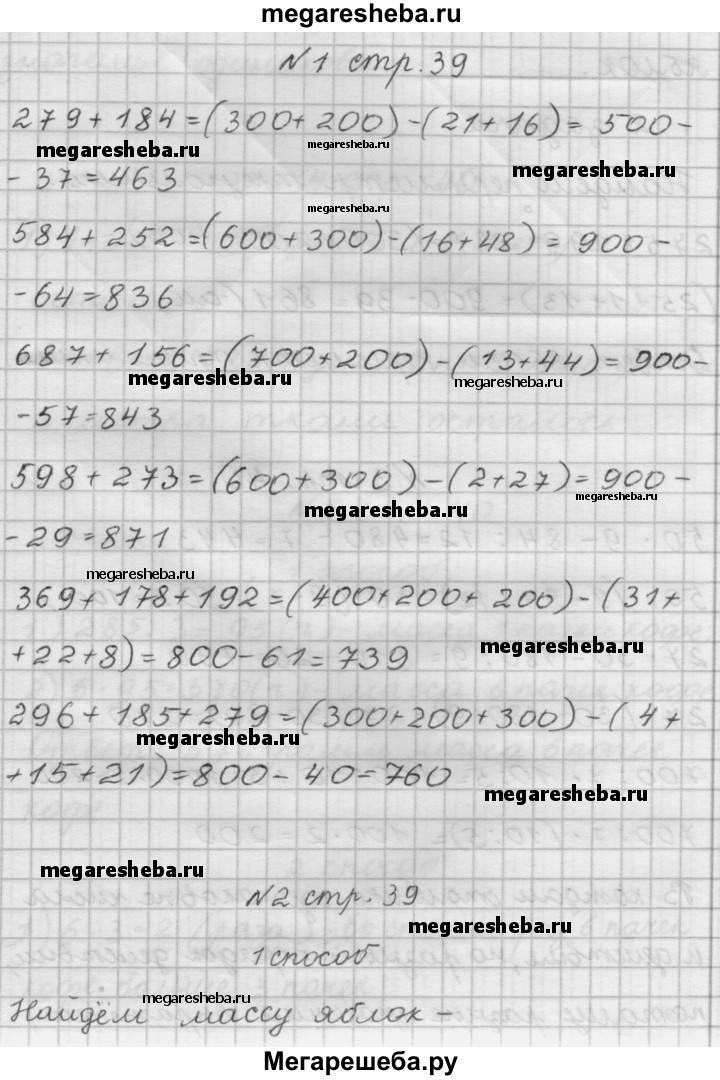 megaresheba.ru
№1 стр. 39
279 + 184 = (300 + 200) - (21 + 16) = 500 -
megaresheba.ru
megaresheba.ru
megaresheba.ru
- 37 = 463
megaresheba.ru
584 + 252 = (600 + 300) - (16 + 48) = 900 -
- 64 = 836
687 + 156 = (700 + 200) - (13 + 44) = 900 -
megaresheba.ru
megaresheba.ru
- 57 = 843
598 + 273 = (600 + 300) - (2 + 27) = 900 -
megaresheba.ru
megaresheba.ru
- 29 = 871
megaresheba.ru
369 + 178 + 192 = (400 + 200 + 200) - (31 +
+ 22 + 8) = 800 - 61 = 739
megaresheba.ru
296 + 185 + 279 = (300 + 200 + 300) - (4 +
megaresheba.ru
+ 15 + 21) = 800 - 40 = 760
megaresheba.ru
megaresheba.ru
№2 стр. 39
megaresheba.ru
1 способ
megaresheba.ru
Найдём массу яблок -
Мегарешеба.ру